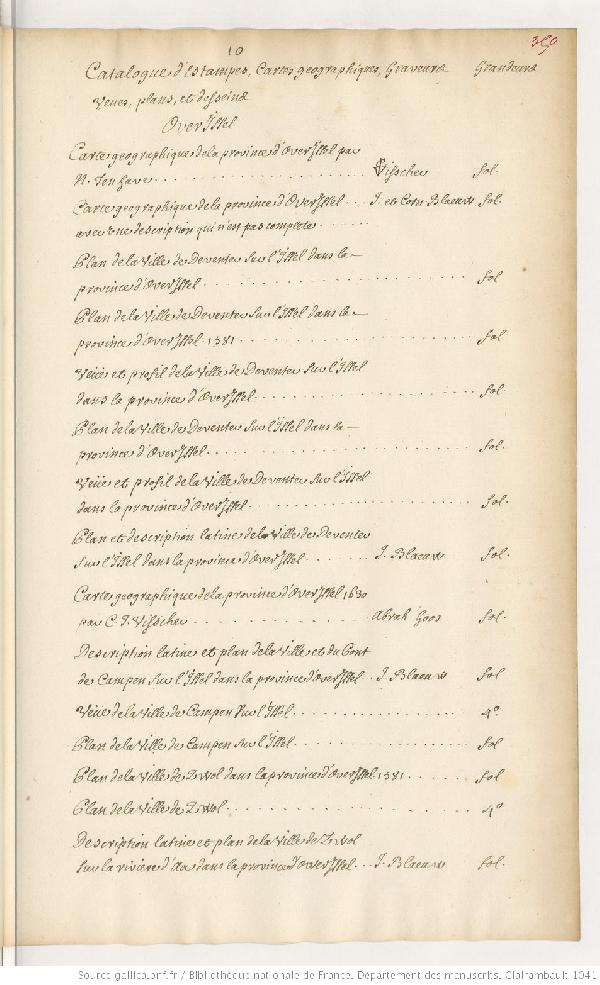 10
Catalogue d'Estampes, Cartes geographiques, Graveures Grandeurs
Veues, plans, et desseins
OverJssel
Carte geographique de la province d'OverJssel par
N. Ten have Visscher fol.
Carte geographique de la province d'OverJssel J. et Corn Blaeuw fol.
avec une description qui n'est pas complete
Plan de la Ville de Deventer sur l'Jssel dans la
province d'OverJssel fol
Plan de la Ville de Deventer sur l'Jssel dans la
province d'OverJssel 1581 fol
Veüe et profil de la Ville de Deventer sur l'Jssel
dans la province d'OverJssel fol.
Plan de la Ville de Deventer sur l'Jssel dans la
province d'OverJssel fol.
Veüe et profil de la Ville de Deventer sur l'Jssel
dans la province d'OverJssel fol.
Plan et description latine de la Ville de Deventer
sur l'Jssel dans la province d'OverJssel J. Blaeuw fol.
Carte geographique de la province d'OverJssel 1630
par C. J. Visscher Abrah Goos fol.
Description latine et plan de la Ville et du Pont
de Campen sur l'Jssel dans la province d'OverJssel J. Blaeuw fol
Veüe de la Ville de Campen sur l'Jssel 4º
Plan de la Ville de Campen sur l'Jssel fol
Plan de la Ville de Zwol dans la province d'OverJssel 1581 fol
Plan de la Ville de Zwol 4º
Description latine et plan de la Ville de Zwol
sur la riviere d'Aa dans la province d'OverJssel J. Blaeuw fol.
Source gallica.bnf.fr / Bibliothèque nationale de France. Département des manuscrits. Clairambault 1041